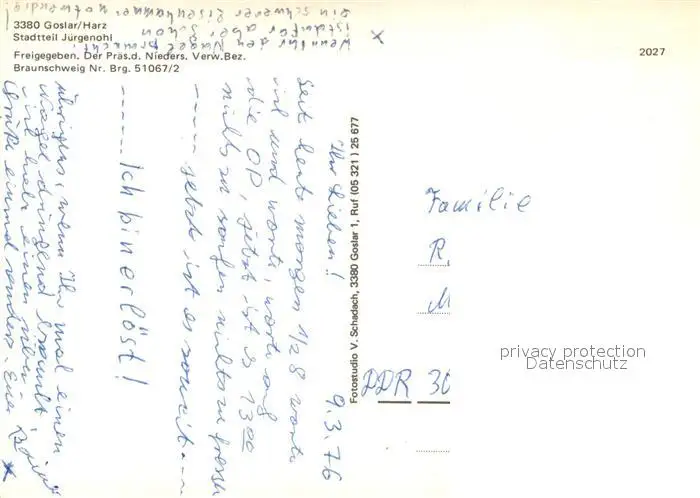 3380 Goslar/Harz
Stadtteil Jürgenohl
Freigegeben. Der Präs.d. Nieders. Verw.Bez.
Braunschweig Nr. Brg. 51067/2
2027
9.3.76
Ihr Lieben!
Seit heute morgen 1/2 8 warte
ich und warte, warte auf
die OP, jetzt ist es 13 00
nichts zu saufen nichts zu fressen
----- jetzt ist es soweit ---
----- Ich bin erlöst!
übrigens, wenn Ihr mal einen
Nagel dringend braucht,
ich habe einen
einmal Euer
x
Wenn Ihr den Nagel braucht,
ist dafür aber schon
ein schwerer Eisenhammer notwendig!
Fotostudio V. Schadach, 3380 Goslar 1, Ruf (05 321) 25 677
Familie
R.
M
DDR 30
privacy protection
Datenschutz